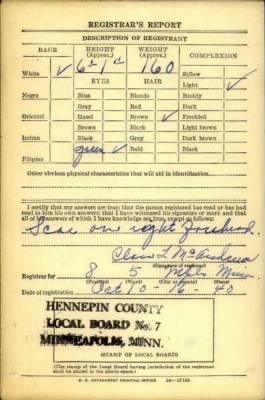 REGISTRAR'S REPORT
DESCRIPTION OF REGISTRANT
RACE HEIGHT (Approx.) WEIGHT (Approx.) COMPLEXION
White ✓ 6 ft 1 160 Sallow
EYES HAIR Light ✓
Negro Blue Blonde Ruddy
Gray Red Dark
Oriental Hazel Brown ✓ Freckled
Brown Black Light brown
Indian Black Gray Dark brown
green ✓ Bald Black
Filipino
Other obvious physical characteristics that will aid in identification
I certify that my answers are true; that the person registered has read or has
had read to him his own answers; that I have witnessed his signature or mark and that
all of his answers of which I have knowledge are true, except as follows:
Scar on right forehead.
(Signature of registrar)
Registrar for 8 5 Mpls Minn
(Precinct) (Ward) (City or county) (State)
Date of registration Oct 10-16-40
HENNEPIN COUNTY
LOCAL BOARD No. 7
MINNEAPOLIS, MINN.
(STAMP OF LOCAL BOARD)
(The stamp of the Local Board having jurisdiction of the registrant
shall be placed in the above space.)
U. S. GOVERNMENT PRINTING OFFICE 16-17105